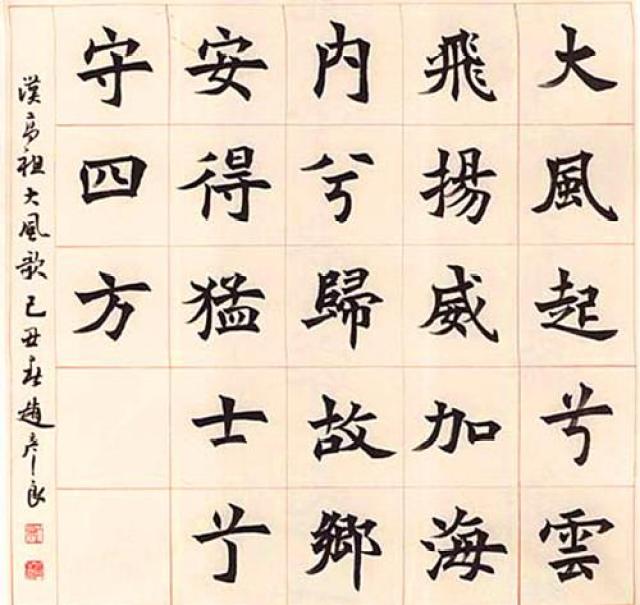 大風起兮雲
飛揚威加海
内兮歸故鄉
安得猛士兮
守四方
漢高祖大風歌己丑春趙彥良